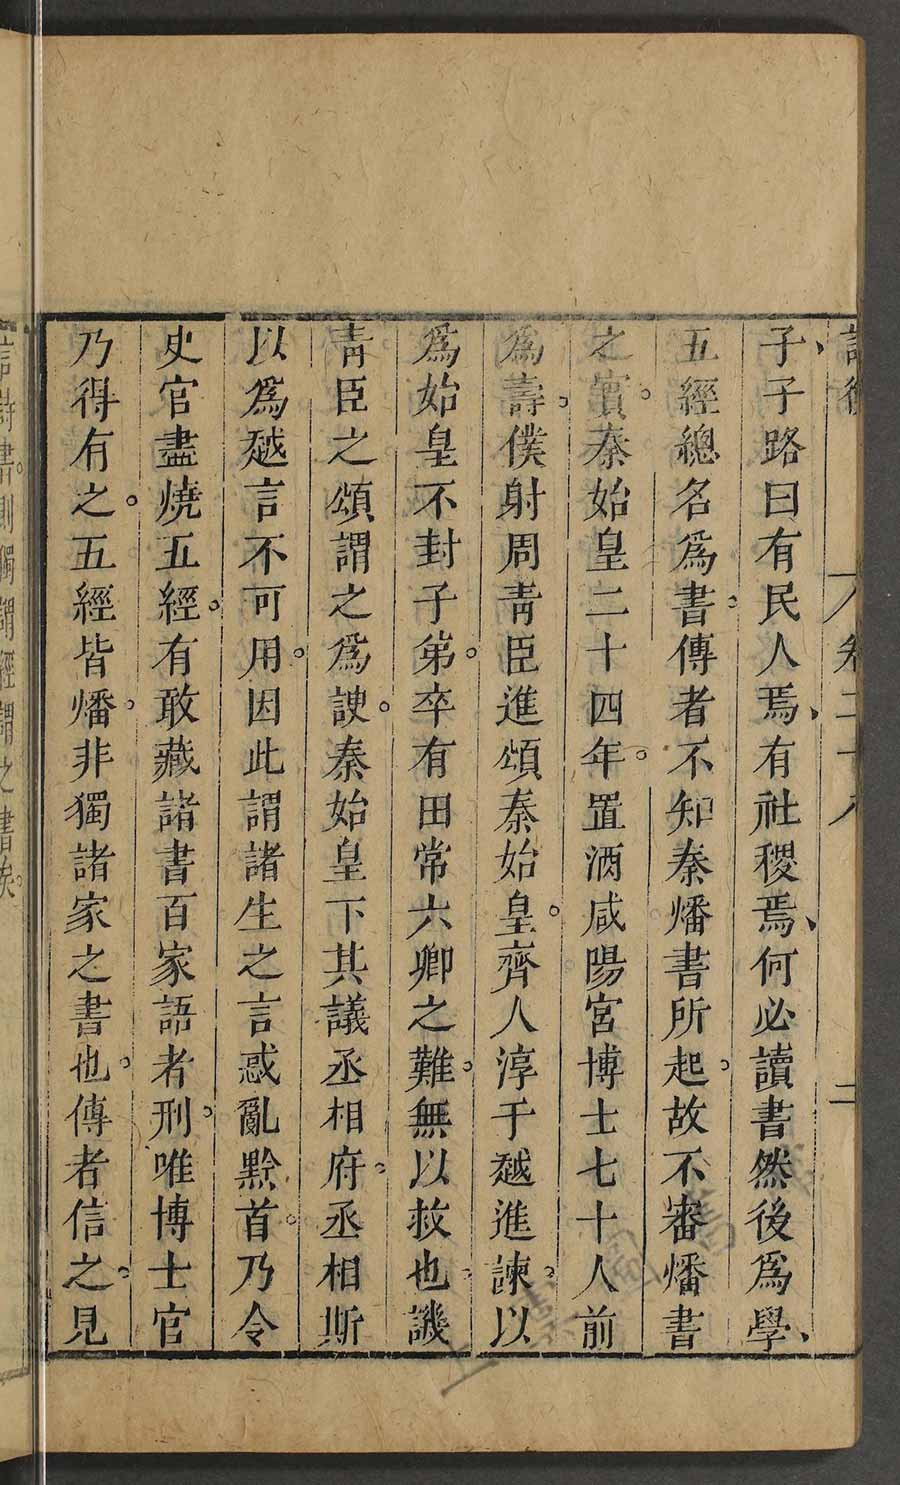 卷二十八 二
子、子路曰有民人焉、有社稷焉、何必讀書然後爲學、
五經總名爲書。傳者不知秦燔書所起。故不審燔書
之實。秦始皇二十四年。置酒咸陽宮博士七十人前
爲壽。僕射周靑臣進頌秦始皇。齊人淳于越進諫。以
爲始皇不封子弟。卒有田常六卿之難。無以救也。譏
靑臣之頌謂之爲諛。秦始皇下其議丞相府。丞相斯
以爲越言不可用。因此謂諸生之言惑亂黔首。乃令
史官盡燒五經。有敢藏諸書百家語者刑。唯博士官
乃得有之。五經皆燔。非獨諸家之書也。傳者信之。見
言詩書。則獨謂經謂之書矣。